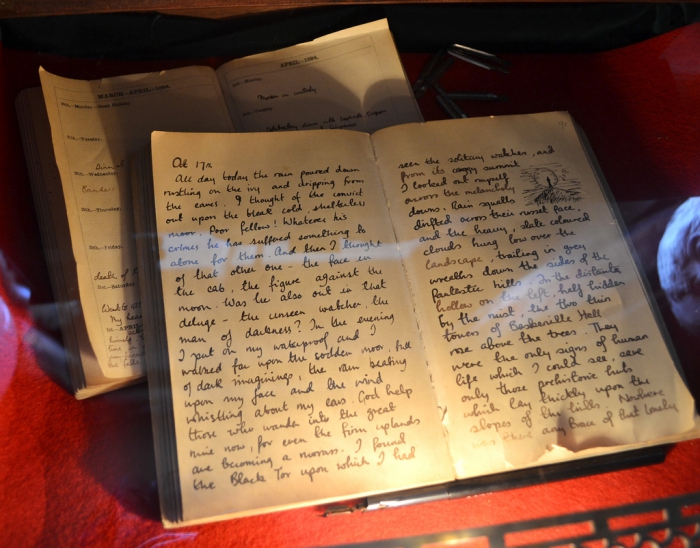 MARCH-APRIL-1884.
APRIL-1884.
Oct 17th
All day today the rain poured down
rustling on the ivy and dripping from
the eaves. I thought of the convict
out upon the bleak cold, shelterless
moor. Poor fellow! Whatever his
crimes he has suffered something to
atone for them. And then I thought
of that other one - the face in
the cab, the figure against the
moon. Was he also out in that
deluge - the unseen watcher, the
man of darkness? In the evening
I put on my waterproof and I
walked far upon the sodden moor, full
of dark imaginings, the rain beating
upon my face and the wind
whistling about my ears. God help
those who wander into the great
mire now, for even the firm uplands
are becoming a morass. I found
the Black Tor upon which I had
seen the solitary watcher, and
from its craggy summit
I looked out myself
across the melancholy
downs. Rain squalls
drifted across their russet face,
and the heavy, slate coloured
clouds hung low over the
landscape, trailing in grey
wreaths down the sides of the
fantastic hills. In the distance
hollow on the left, half hidden
by the mist, the two thin
towers of Baskerville Hall
rose above the trees. They
were the only signs of human
life which I could see, save
only those prehistoric huts
which lay thickly upon the
slopes of the hills. Nowhere
was there any trace of that lonely